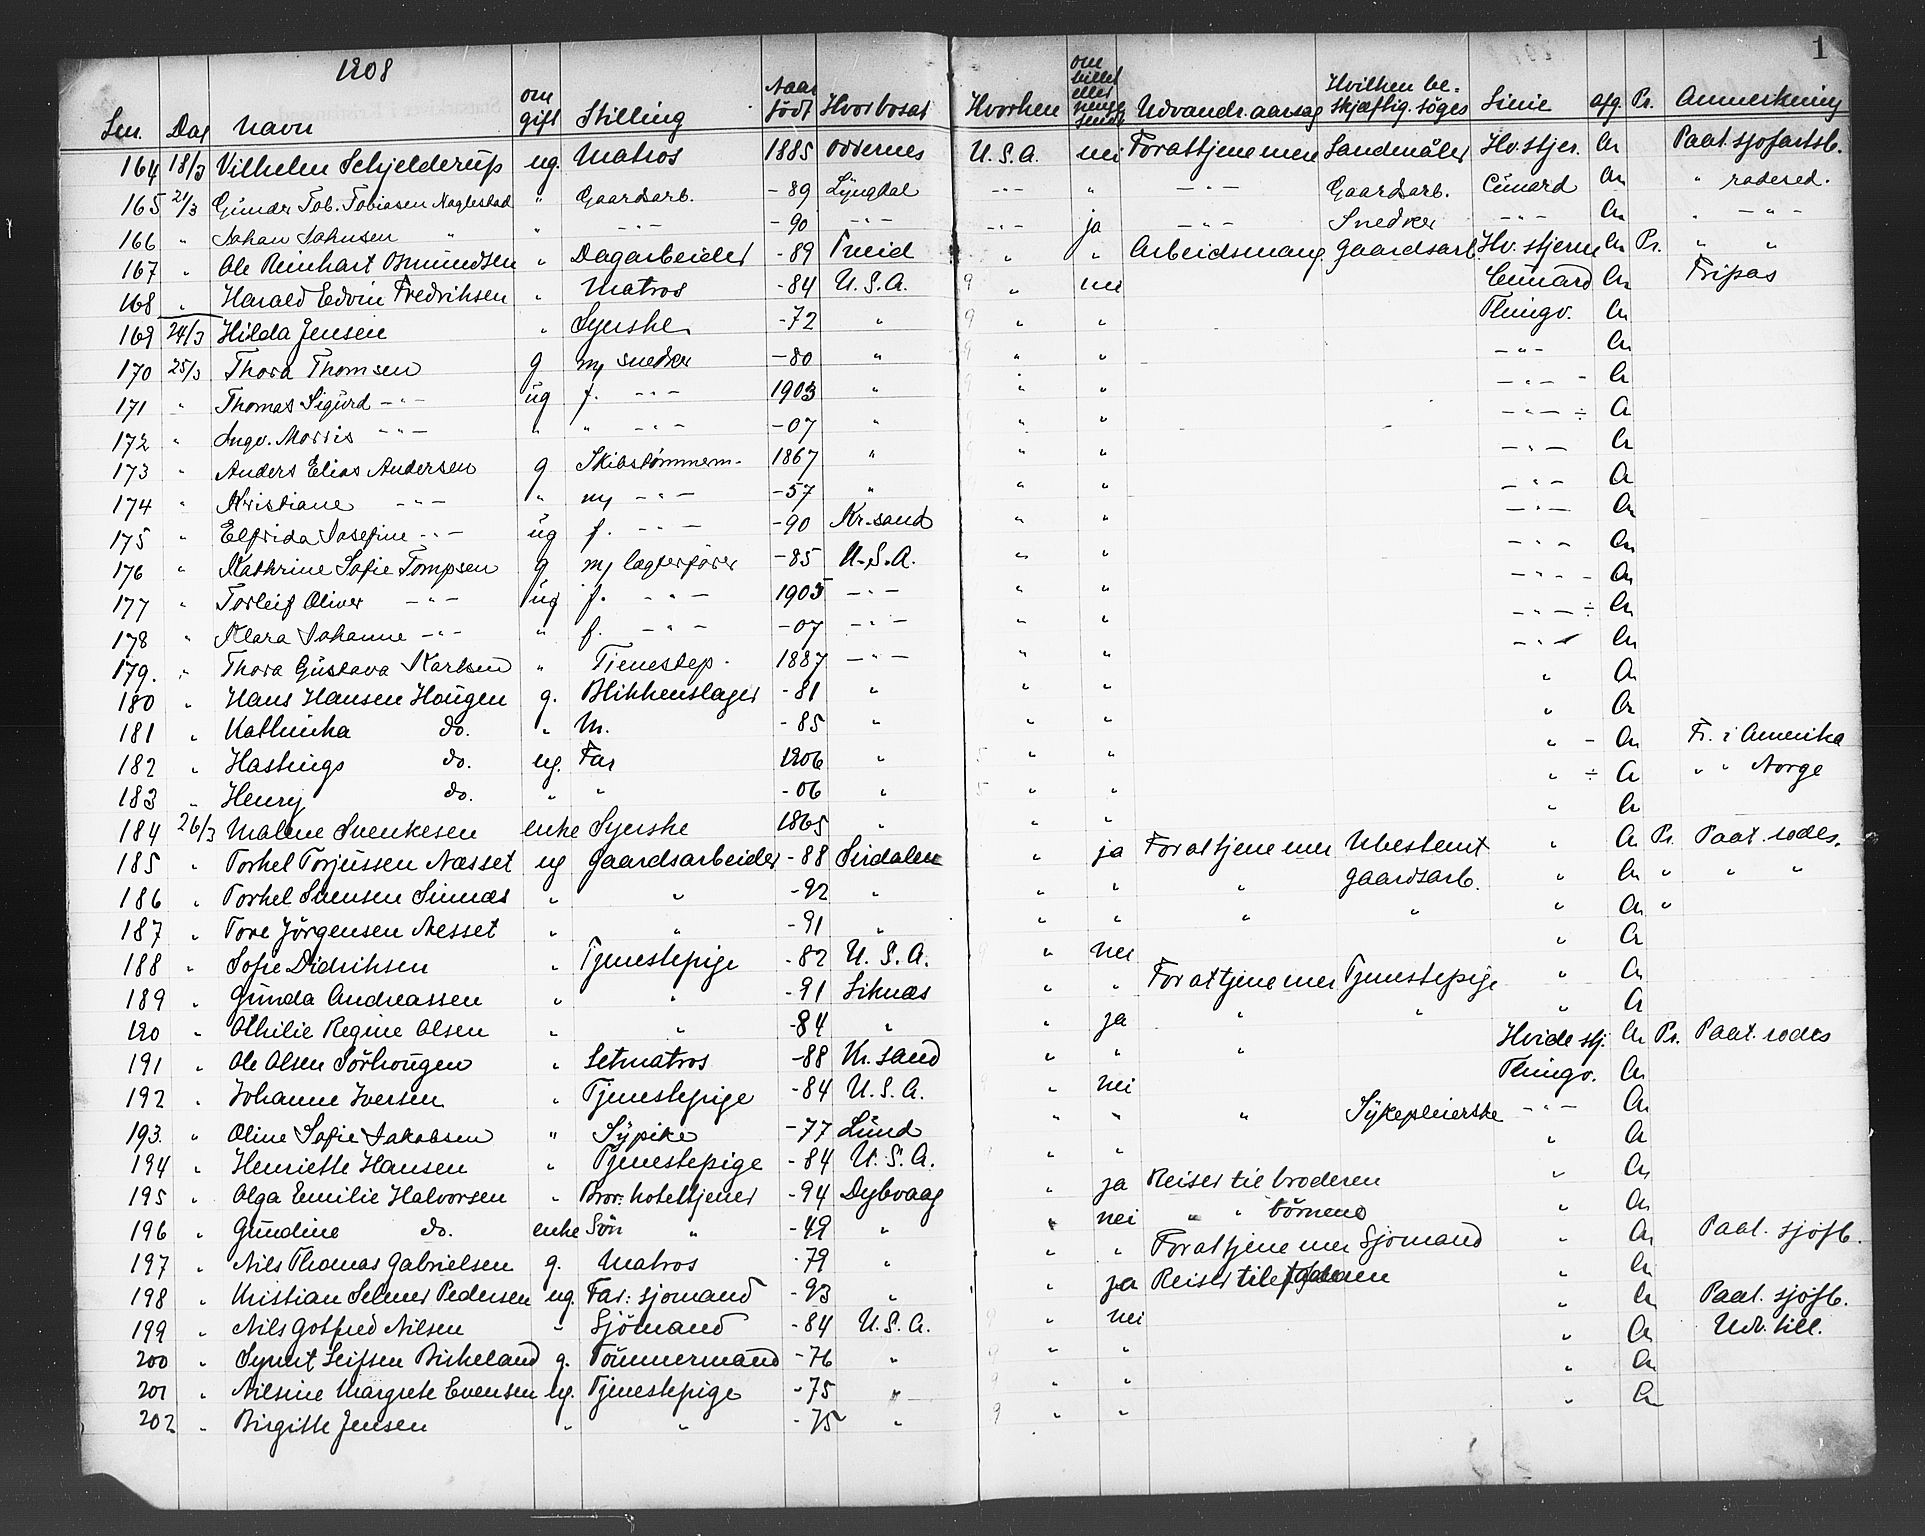 1908
1
Len. Dag Navn om gift Stilling Aaar födt Hvor bosat Hvorhen om billet eller penge sendt Udvandr. aarsag Hvilken beskjæftig. söges Linie afg. Pr. Anmerkning
164 18/3 Vilhelm Schjelderup ug. Matros 1885 Oddernes U.S.A. nei For at tjene mer Landmåler Hv. stjer. A Paat. sjofartsb.
165 21/3 Gundr Tob. Tobiasen Naglestad " Gaardsarb. -89 Lyngdal -"- " -"- Gaardsarb. Cunard A " rodesed.
166 " Johan Johnsen " " -"- -90 -"- -"- ja -"- Snedker -"- A " -"-
167 " Ole Reinhart Osmundsen " Dagarbeider -89 Tveid " " Arbeidsmang. Gaardsarb. Hv. stjerne A Pr. " "
168 " Harald Edvin Fredriksen " Matros -84 U.S.A. 9 " nei Cunard A Fripas
169 24/3 Hilda Jensen " Syerske -72 " 9 " " Thingv. A
170 25/3 Thora Thomsen g m/ snedker -80 " " " -"- A
171 " Thomas Sigurd -"- ug f. -"- 1903 " " " -"- - A
172 " Ingv. Morris -"- " " -"- -07 " " " -"- ÷ A
173 " Anders Elias Andersen g Skibstömmerm. 1867 " " " -"- A
174 " Kristiane -"- " m/ -"- -57 " " " -"- A
175 " Elfrida Josefine -"- ug f. -"- -90 Kr.sand " " -"- A
176 " Kathrine Sofie Tompsen g m/ lægterfører -85 U.S.A. " " -"- A
177 " Torleif Oliver -"- ug f. -"- 1905 -"- " " -"- - A
178 " Klara Johanne -"- " f. -"- -07 -"- " " -"- ÷ A
179. " Thora Gustava Karlsen " Tienestep. 1887 -"- " " -"- A
180 " Hans Hansen Hougen g. Blikkenslager -81 " " " " A
181 " Kathinka do. " M. -85 " " " " A
182 " Hastings do. ug. Far 1906 " 5 " " " - A Fr. i Amerika
183 " Henry do. " " -06 " 5 " " " ÷ A " " Norge
184 26/3 Malene Svenkesen enke Syerske 1865 " " " " A
185 " Torkel Torjussen Næsset ug Gaardsarbeider -88 Sirdalen " ja For at tjene mer Ubestemt " A Pr. Paat. rodes.
186 " Torkel Svensen Sinnæs " " -92 " " " " Gaardsarb. " A " " "
187 " Tore Jörgensen Nesset " " -91 " " " " " " A "
188 " Sofie Didriksen " Tjenestepige -82 U.S.A. 9 " nei " A
189 " Gunda Andreassen " " -91 Siknæs " " For at tjene mer Tjenestepige " A
190 " Othilie Regine Olsen " " -84 " " ja " " " A
191 " Ole Olsen Sörhougen " Letmatros -88 Kr.sand " " " Hvide stj. A Pr. Paat. rodes
192 " Johanne Iversen " Tjenestepige -84 U.S.A. " nei Thingv. A
193. " Oline Sofie Jakobsen " Sypike -77 Lund " " " Sykepleierske -"- A
194 " Henriette Hansen " Tjenestepige -84 U.S.A. " " " A
195 " Olga Emilie Halvorsen " Bror: hoteltjener -94 Dybvaag " ja Reiser til broderen " A
196 " Gundine do. enke Sön " -49 " " nei " " börnene " A
197 " Nils Thomas Gabrielsen g. Matros -79 " " " For at tjene mer Sjomand " A Paat. sjöfb.
198 " Kristian Selmer Pedersen ug. Far: sjomand -93 " " ja Reiser til faderen " A
199 " Nils Gotfred Nilsen " Sjömand -84 U.S.A. 9 " nei " A Paat. sjöfb.
200 " Syvert Leifsen Birkeland g. Tömmermand -76 " 9 " " " A Udr. till.
201 " Nilsine Margrete Evensen ug. Tjenestepige -75 " 9 " " " A
202 " Birgitte Jensen " " -75 " 9 " " " A